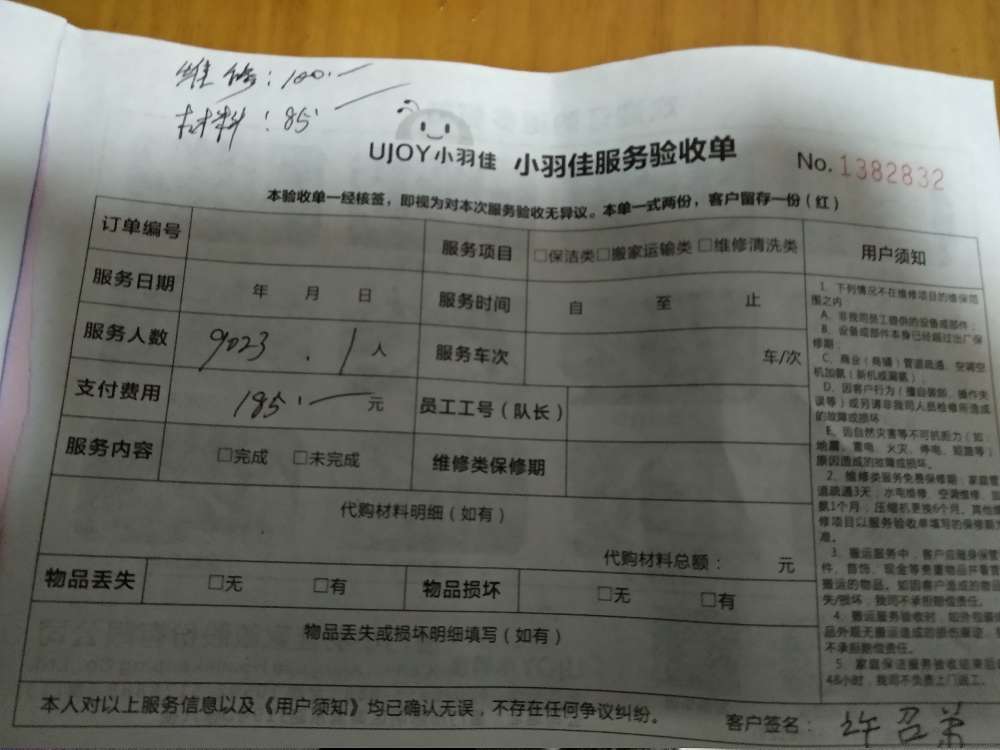 维修：100.一
材料：85.一
UJOY小羽佳 小羽佳服务验收单 No.1382832
本验收单一经核签，即视为对本次服务验收无异议。本单一式两份，客户留存一份（红）
订单编号 服务项目 □保洁类□搬家运输类□维修清洗类
服务日期 年 月 日 服务时间 自 至 止
服务人数 9023.1人 服务车次 车/次
支付费用 185.一元 员工工号（队长）
服务内容 □完成 □未完成 维修类保修期
代购材料明细（如有）
代购材料总额： 元
物品丢失 □无 □有 物品损坏 □无 □有
物品丢失或损坏明细填写（如有）
本人对以上服务信息以及《用户须知》均已确认无误，不存在任何争议纠纷。
客户签名：许召弟
用户须知
1、下列情况不在维修项目的维保范
围之内：
A、非我司员工提供的设备或部件；
B、设备或部件本身已经超过出厂保
修期；
C、商业（商铺）管道疏通、空调空
机加氨（新机或漏氨）；
D、因客户行为（擅自装卸、操作失
误等）或另请非我司人员检修所造成
的故障或损坏；
E、因自然灾害等不可抗力（如：
地震、雷电、火灾、停电、短路等）
原因造成的故障或损坏。
2、维修类服务免费保修期：家庭管
道疏通3天；水电维修、空调维修、
氨1个月；压缩机更换6个月。其他
修项目以服务验收单填写的保修期为
准。
3、搬运服务中，客户应随身保管
件、首饰、现金等贵重物品并看管
搬运的物品。如因客户造成的物品
失/损坏，我司不承担赔偿责任。
4、搬运服务验收时，如外包装
品外观无搬运造成的损伤痕迹，
不承担赔偿责任。
5、家庭保洁服务验收结束后
48小时，我司不负责上门返工。